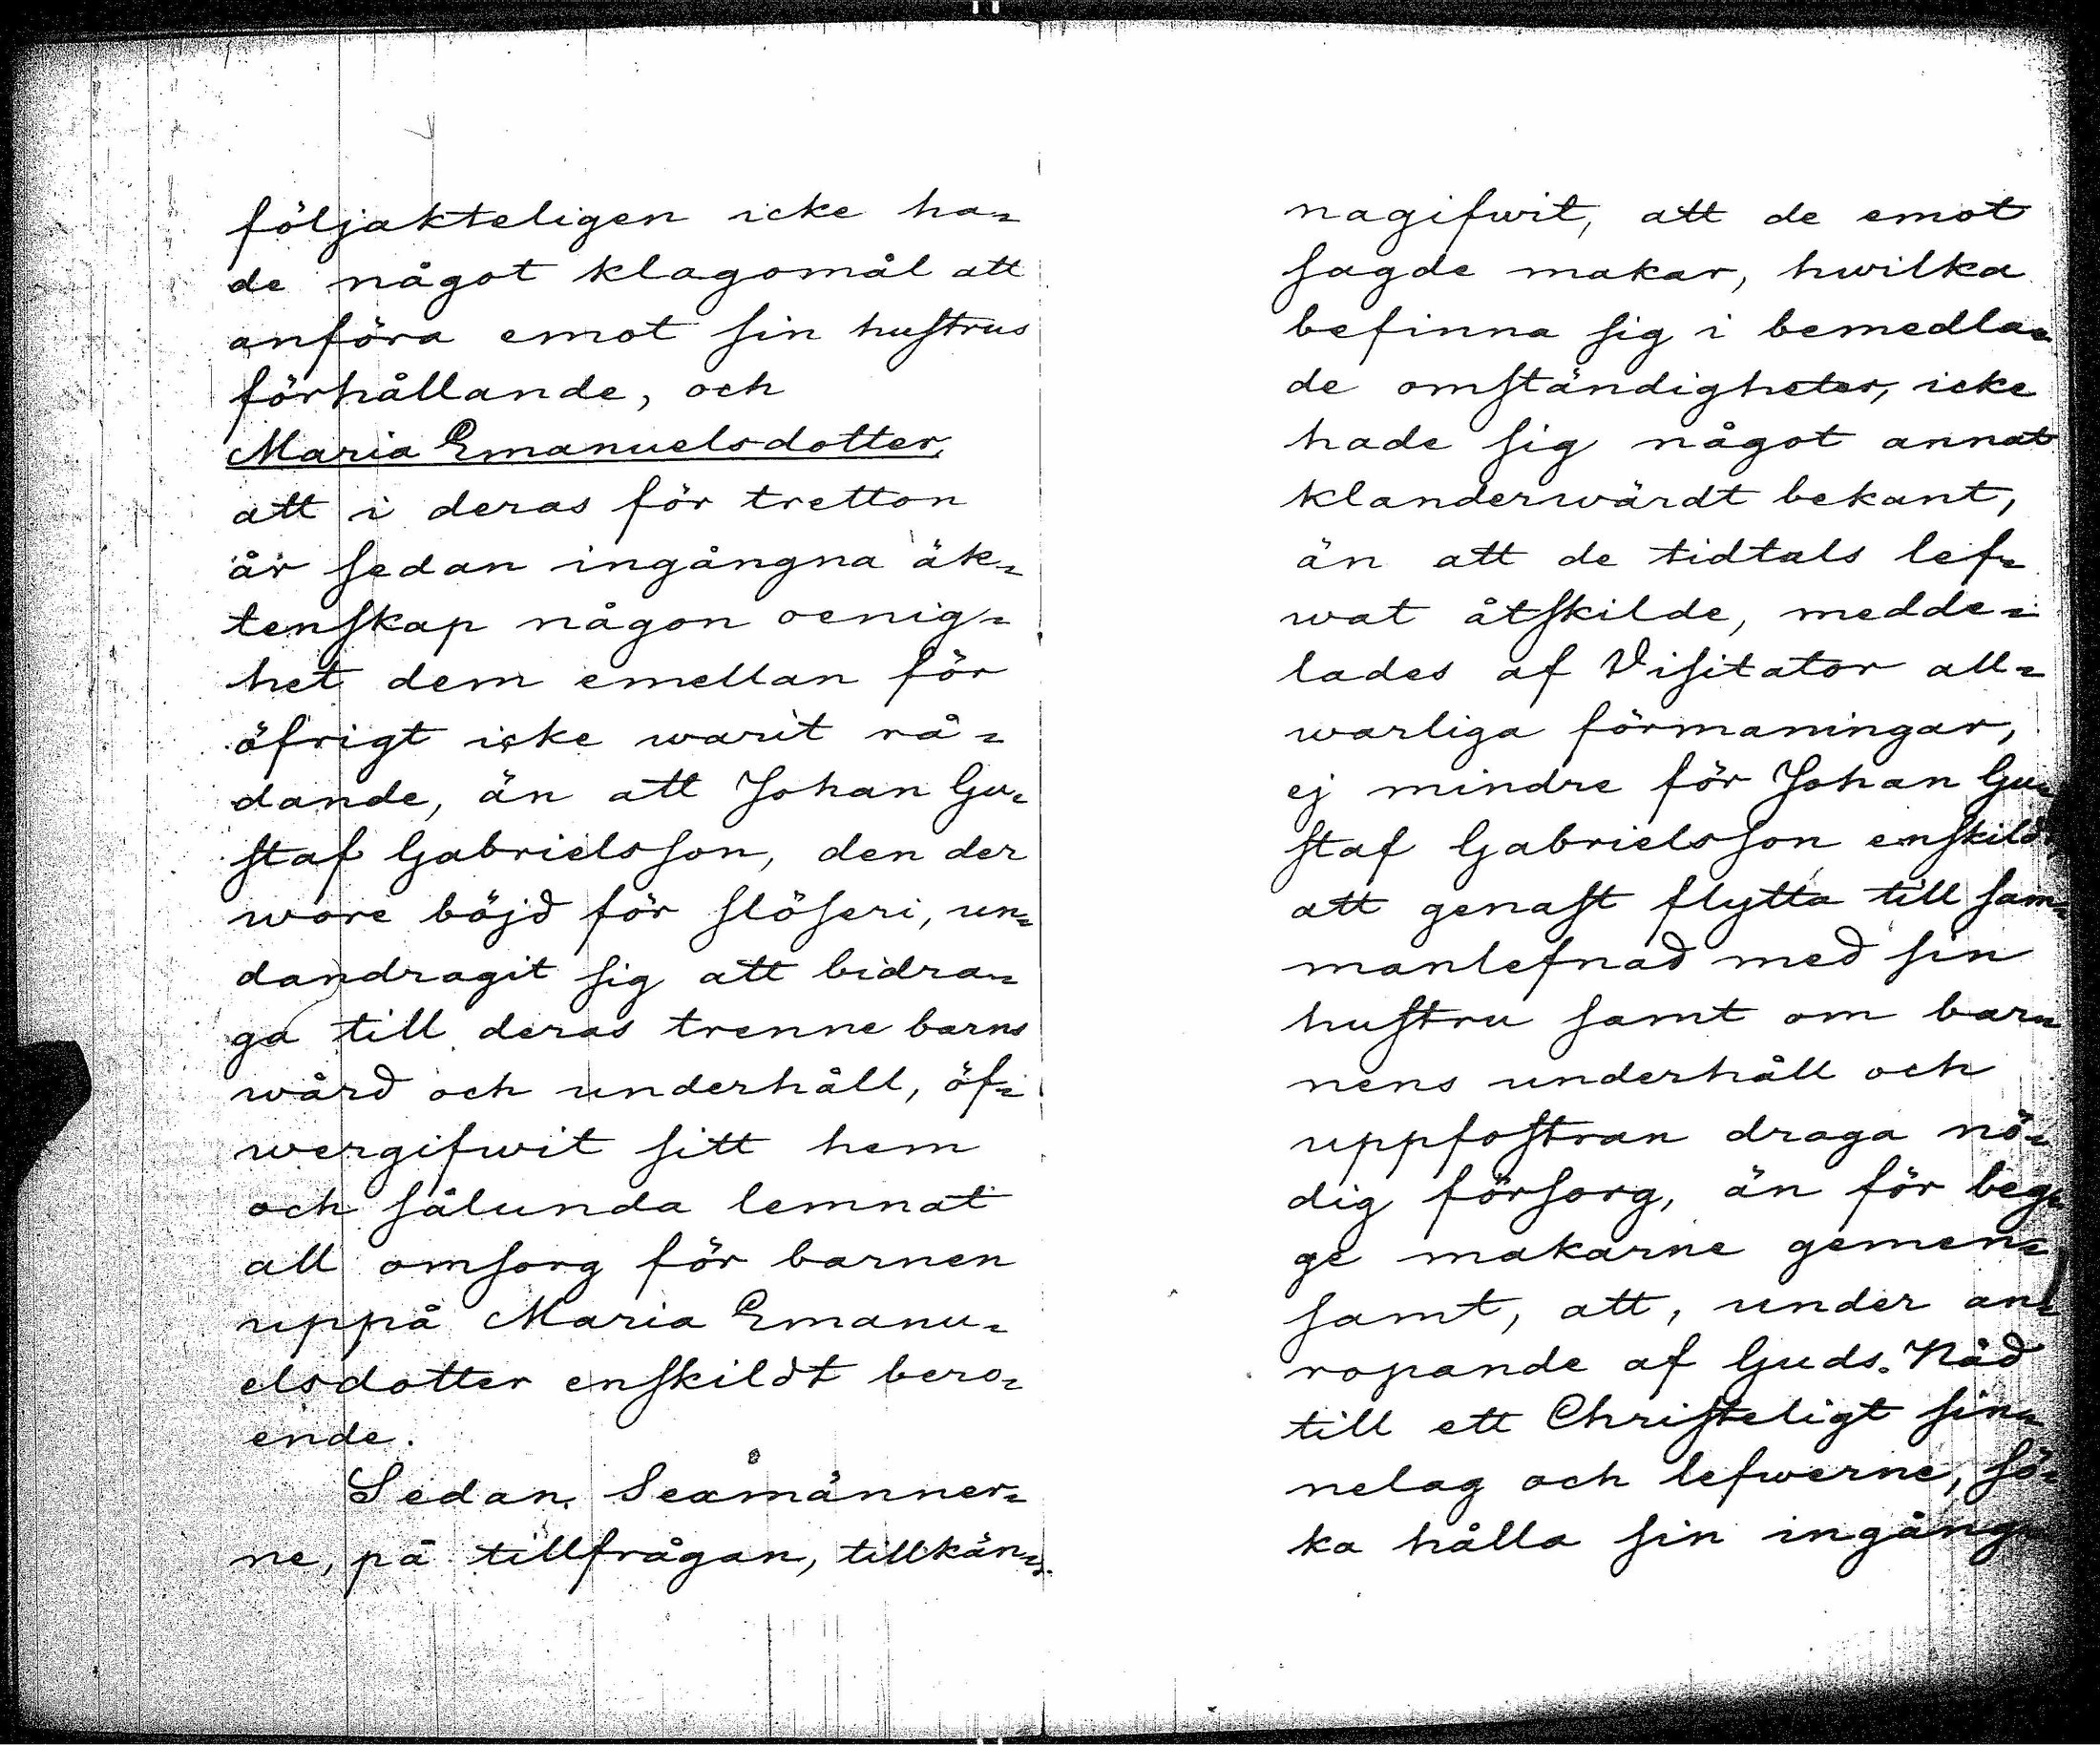 följakteligen icke ha=
de något klagomål att
anföra emot sin hustrus
förhållande, och
Maria Emanuelsdotter,
att i deras för tretton
år sedan ingångna äk=
tenskap någon oenig=
het dem emellan för
öfrigt icke warit rå=
dande, än att Johan Gu=
staf Gabrielsson, den der
wore böjd för slöseri, un=
dandragit sig att bidra=
ga till deras trenne barns
wård och underhåll, öf=
wergifwit sitt hem
och sålunda lemnat
all omsorg för barnen
uppå Maria Emanu=
elsdotter enskildt bero=
ende.
Sedan Sexmänner=
ne, på tillfrågan, tillkän=
nagifwit, att de emot
sagde makar, hwilka
befinna sig i bemedla=
de omständigheter, icke
hade sig något annat
klanderwärdt bekant,
än att de tidtals lef=
wat åtskilde, medde=
lades af Visitator all=
warliga förmaningar,
ej mindre för Johan Gu=
staf Gabrielsson enskildt,
att genast flytta till sam=
manlefnad med sin
hustru samt om bar=
nens underhåll och
uppfostran draga nö=
dig försorg, än för beg=
ge makarne gemen=
samt, att, under an=
ropande af Guds Nåd
till ett Christeligt sin=
nelag och lefwerne, sö=
ka hålla sin ingång=